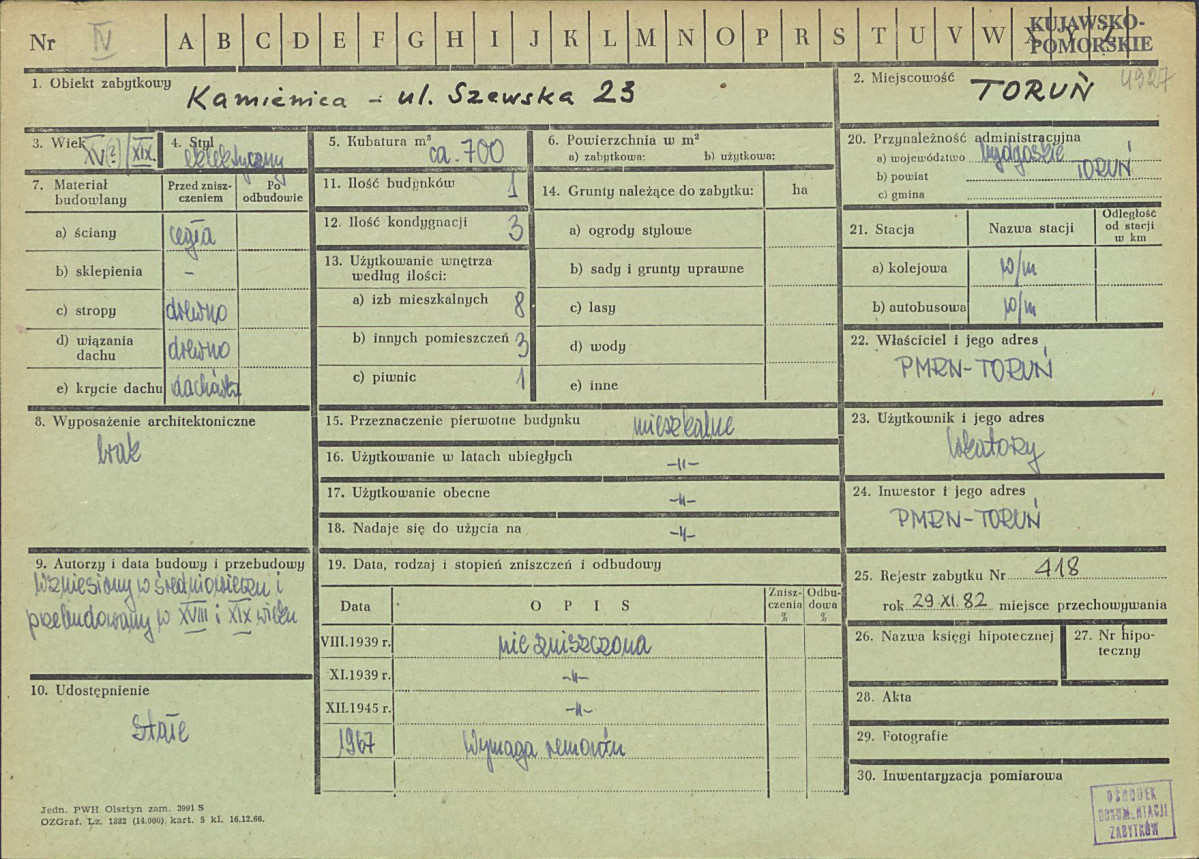 Nr IV A B C D E F G H I J K L M N O P R S T U V W X Y Z KUJAWSKO-
POMORSKIE
1. Obiekt zabytkowy
Kamienica - ul. Szewska 23
2. Miejscowość
4927
TORUŃ
3. Wiek XV(?)/XIX.
4. Styl
eklektyczny
5. Kubatura m³
ca. 700
6. Powierzchnia w m²
a) zabytkowa: b) użytkowa:
7. Materiał
budowlany
Przed znisz-
czeniem
Po
odbudowie
a) ściany cegła
b) sklepienia –
c) stropy drewno
d) wiązania
dachu
drewno
e) krycie dachu dachówka
8. Wyposażenie architektoniczne
brak
9. Autorzy i data budowy i przebudowy
Wzniesiony w średniowieczu i
przebudowany w XVIII i XIX wieku
10. Udostępnienie
Stałe
11. Ilość budynków 1
12. Ilość kondygnacji 3
13. Użytkowanie wnętrza
według ilości:
a) izb mieszkalnych 8
b) innych pomieszczeń 3
c) piwnic 1
14. Grunty należące do zabytku: ha
a) ogrody stylowe
b) sady i grunty uprawne
c) lasy
d) wody
e) inne
15. Przeznaczenie pierwotne budynku mieszkalne
16. Użytkowanie w latach ubiegłych –"–
17. Użytkowanie obecne –"–
18. Nadaje się do użycia na –"–
19. Data, rodzaj i stopień zniszczeń i odbudowy
Data
OPIS
Znisz-
czenia
%
Odbu-
dowa
%
VIII.1939 r. nie zniszczona
XI.1939 r. –"–
XII.1945 r. –"–
1967 Wymaga remontu
20. Przynależność administracyjna
a) województwo bydgoskie
b) powiat TORUŃ
c) gmina
21. Stacja
Nazwa stacji
Odległość
od stacji
w km
a) kolejowa w/m
b) autobusowa w/m
22. Właściciel i jego adres
PMRN-TORUŃ
23. Użytkownik i jego adres
lokatorzy
24. Inwestor i jego adres
PMRN-TORUŃ
25. Rejestr zabytku Nr 418
rok 29 XI. 82 miejsce przechowywania
26. Nazwa księgi hipotecznej
27. Nr hipo-
teczny
28. Akta
29. Fotografie
30. Inwentaryzacja pomiarowa
Jedn. PWH Olsztyn zam. 3991 S
OZGraf. Lz. 1882 (14.000), kart. 5 kl. 16.12.66.
OŚRODEK
DOKUMENTACJI
ZABYTKÓW